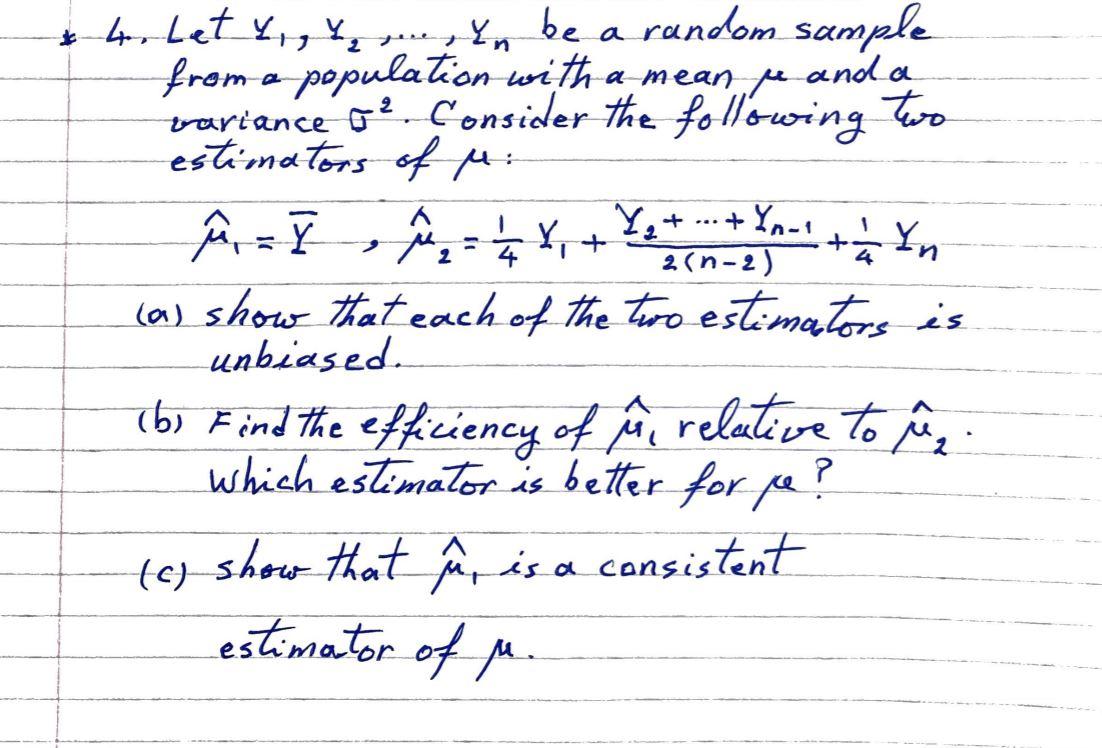 * 4. Let Y₁, Y₂, ..., Yₙ be a random sample
from a population with a mean μ and a
variance σ². Consider the following two
estimators of μ:
μ̂₁ = Ȳ , μ̂₂ = 1/4 Y₁ + (Y₂ + ... + Yₙ₋₁)/(2(n-2)) + 1/4 Yₙ
(a) show that each of the two estimators is
unbiased.
(b) Find the efficiency of μ̂₁ relative to μ̂₂.
Which estimator is better for μ?
(c) show that μ̂₁ is a consistent
estimator of μ.